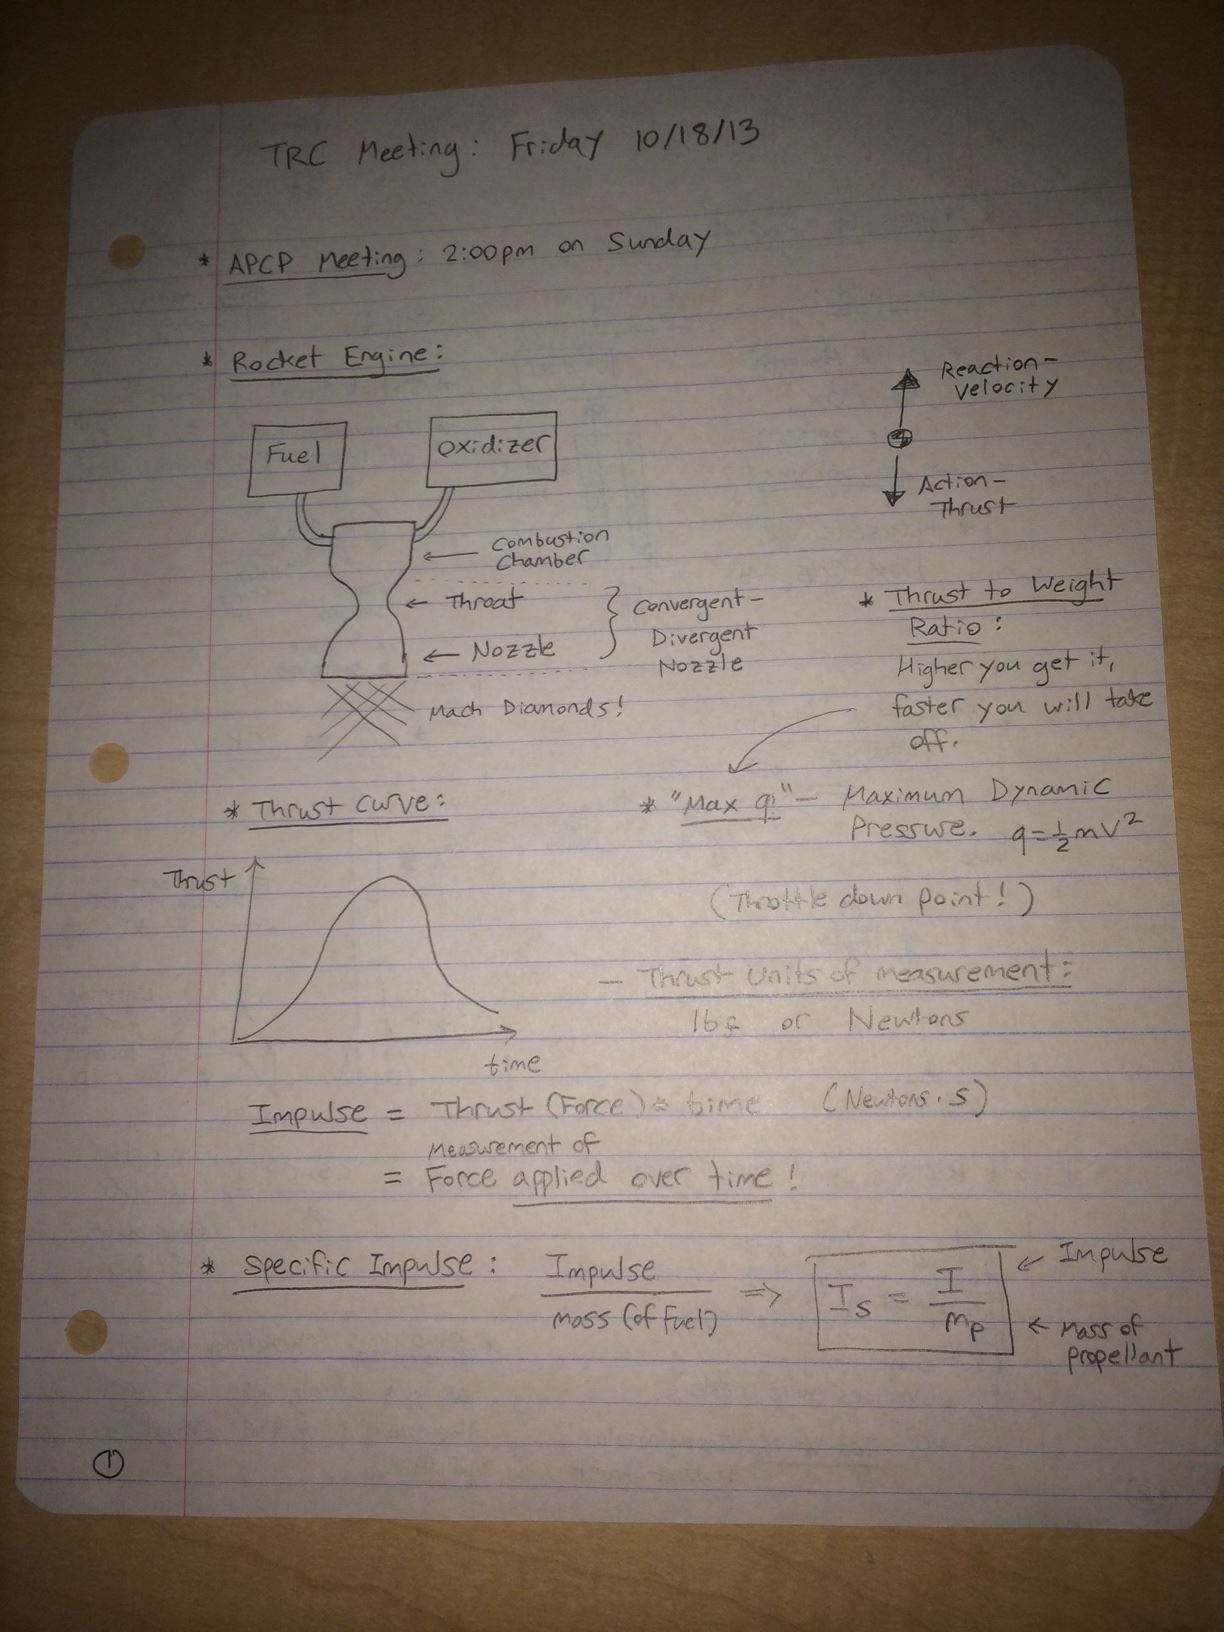 TRC Meeting: Friday 10/18/13
* APCP Meeting: 2:00pm on Sunday
* Rocket Engine:
Reaction-
Velocity
Action-
Thrust
Fuel
Oxidizer
Combustion
Chamber
Throat
Nozzle
Convergent-
Divergent
Nozzle
Mach Diamonds!
* Thrust to Weight
Ratio:
Higher you get it,
faster you will take
off.
* Thrust Curve:
Thrust
time
* "Max q" - Maximum Dynamic
Pressure. q = 1/2 mV²
(Throttle down point!)
- Thrust Units of measurement:
lbf or Newtons
Impulse = Thrust (Force) * time (Newtons · S)
Measurement of
= Force applied over time!
* Specific Impulse: Impulse / mass (of fuel) => Is = I / mp
← Impulse
← Mass of
propellant
1